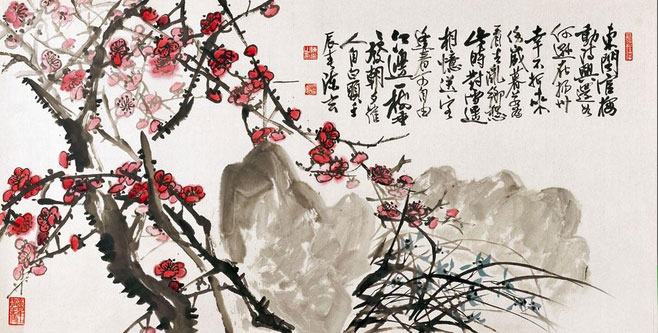 東閣官梅
動詩興還如
何遜在揚州
幸不折來
傷歲暮若為
看去亂鄉愁
此時對雪遙
相憶送客
逢春可自由
江邊一樹垂
發朝夕催
人自白頭